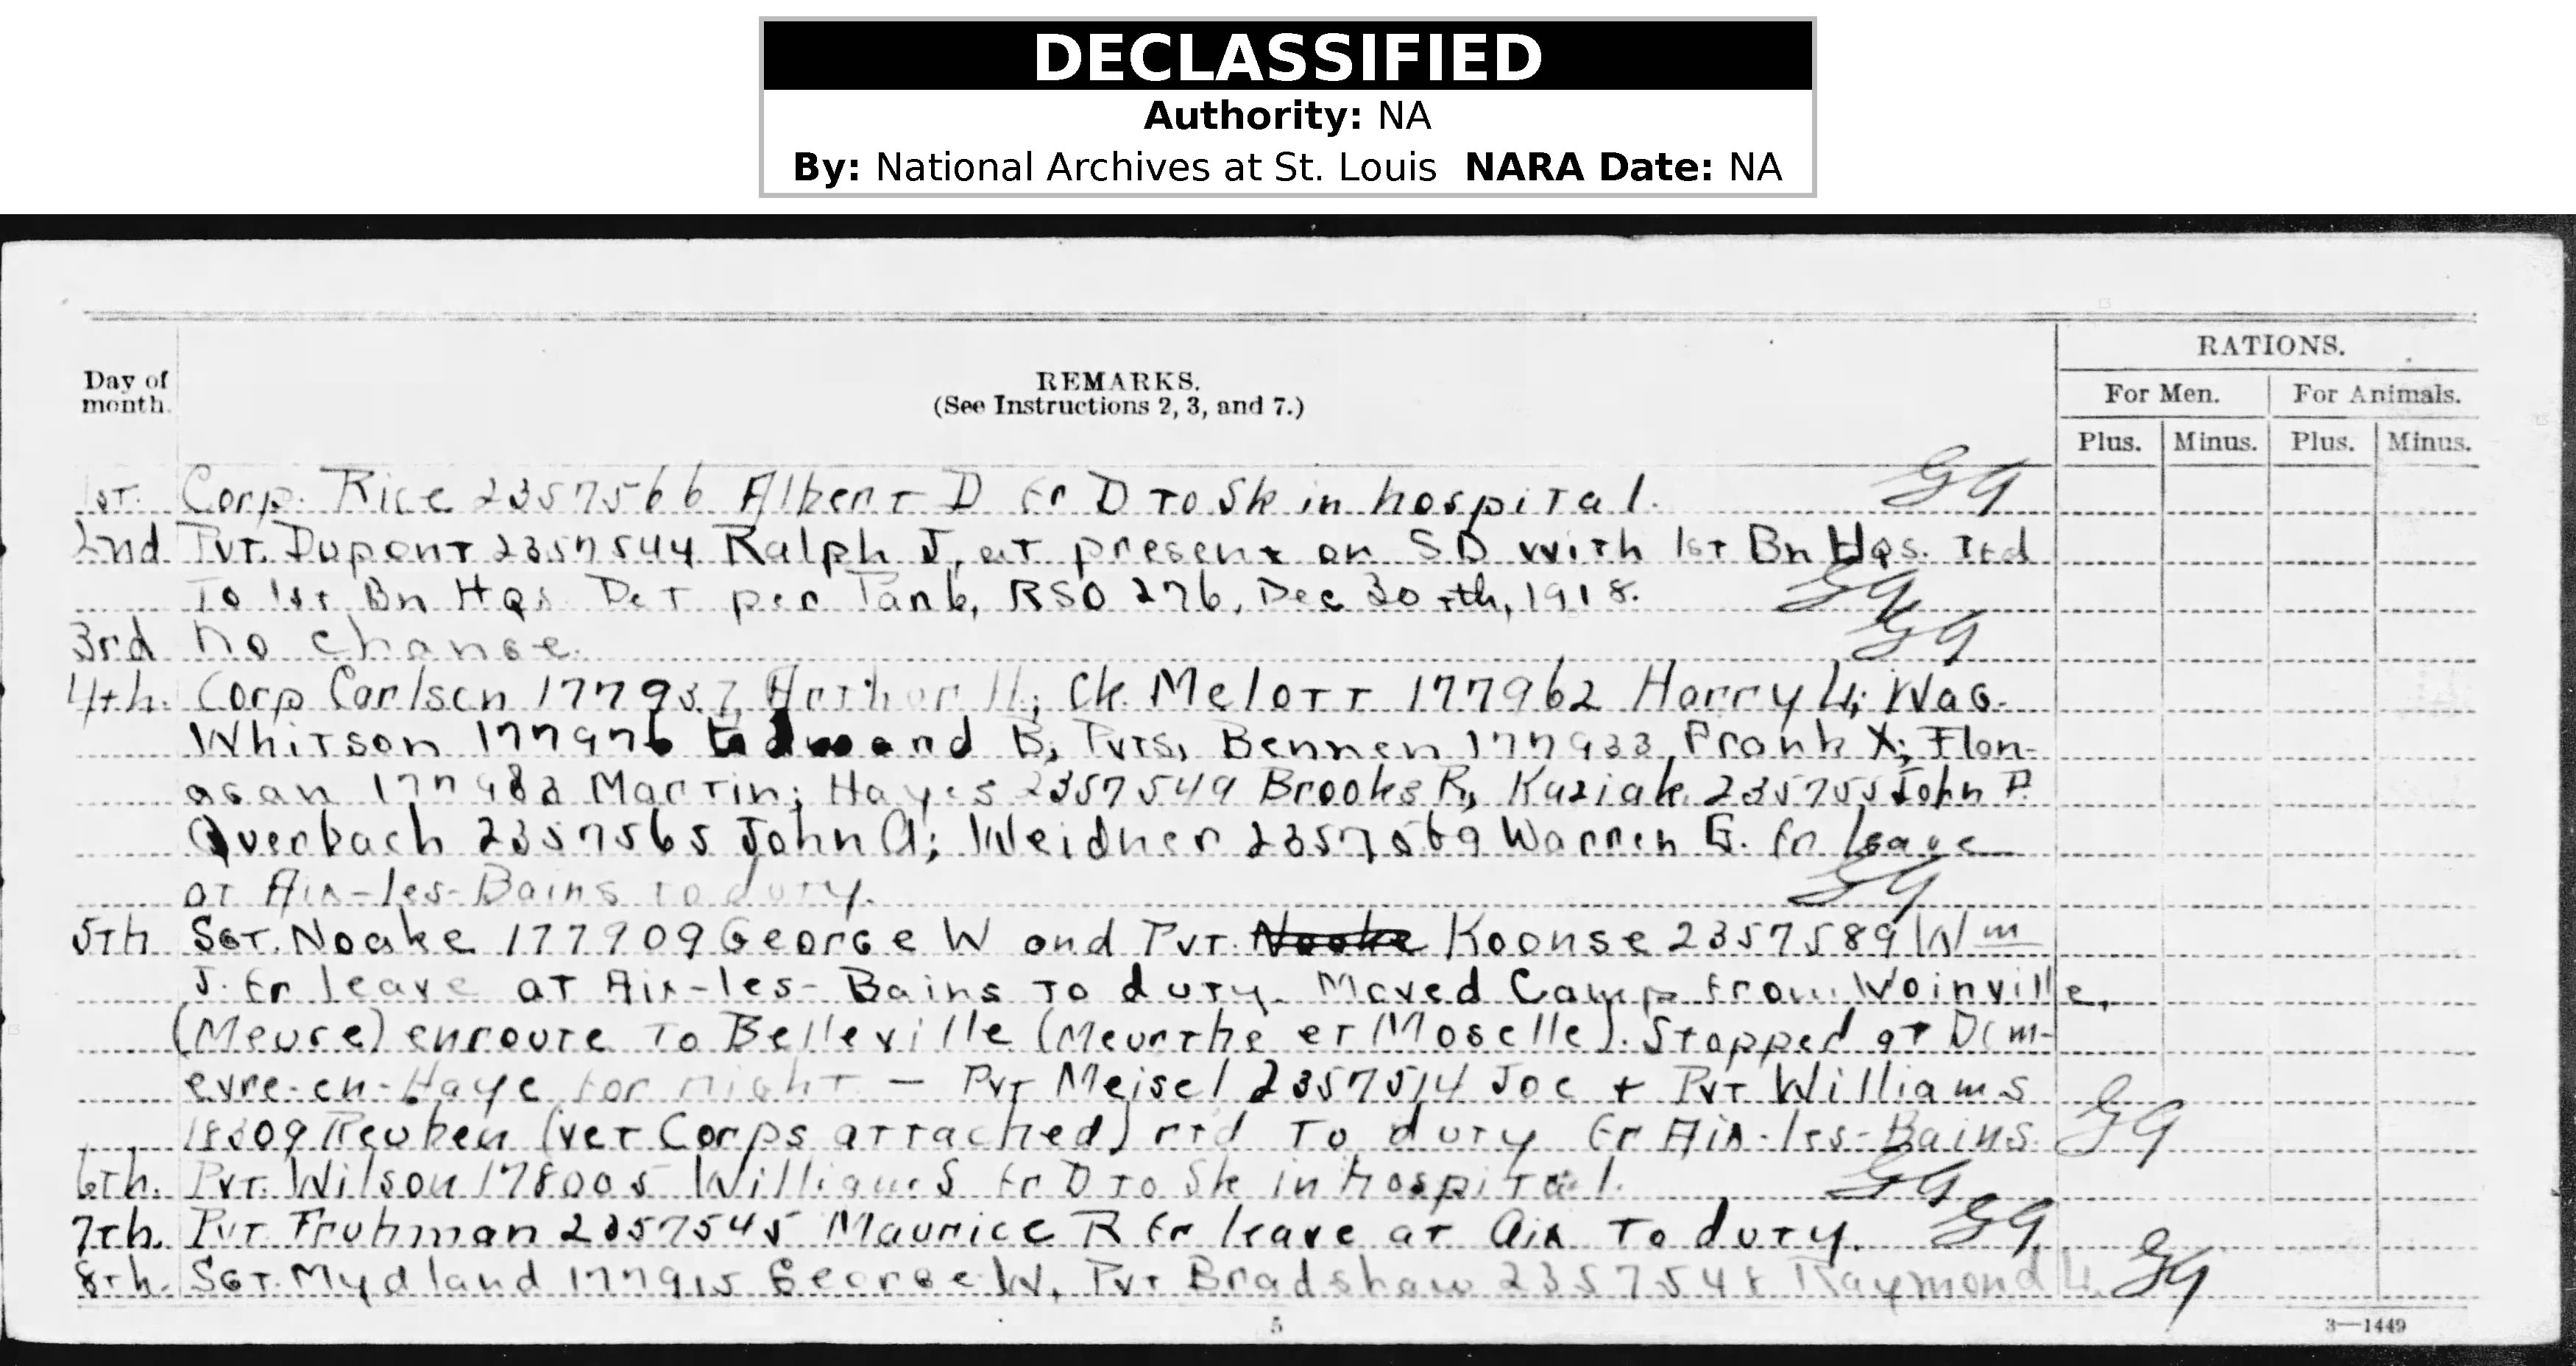 DECLASSIFIED
Authority: NA
By: National Archives at St. Louis NARA Date: NA
RATIONS.
Day of month.
REMARKS.
(See Instructions 2, 3, and 7.)
For Men. For Animals.
Plus. Minus. Plus. Minus.
1st. Corp. Rice 2357566 Albert D fr D to Sk in hospital. GG
2nd Pvt. Dupont 2357544 Ralph J, at present on SD with 1st Bn Hqs. Trd
To 1st Bn Hqs Det per Par 6, RSO 276, Dec 30th, 1918. GG
3rd no change. GG
4th. Corp Carlson 177937 Arthur H; Ck. Melott 177962 Harry L; Wag.
Whitson 177976 Edmond B, Pvts, Bennen 177933 Frank X; Flan-
agan 177983 Martin; Hayes 2357549 Brooks R, Kaziak 235755 John P.
Overbach 2357565 John A; Weidner 2357569 Warren G. fr leave
at Aix-les-Bains to duty. GG
5th Sgt. Noake 177909 George W and Pvt. Noake Koonse 2357589 Wm
J. fr leave at Aix-les-Bains to duty. Moved Camp from Woinville,
(Meuse) enroute to Belleville (Meurthe et Moselle). Stopped at Dom-
evre-en-Haye for night — Pvt Meisel 2357514 Joe + Pvt Williams
18309 Reuben (Vet Corps attached) rtd to duty fr Aix-les-Bains. GG
6th. Pvt. Wilson 178005 William S fr D to Sk in hospital. GG
7th. Pvt Fruhman 2357545 Maurice R fr leave at Aix to duty. GG
8th. Sgt. Mydland 177915 George W, Pvt Bradshaw 2357548 Raymond L. GG
5
3—1449